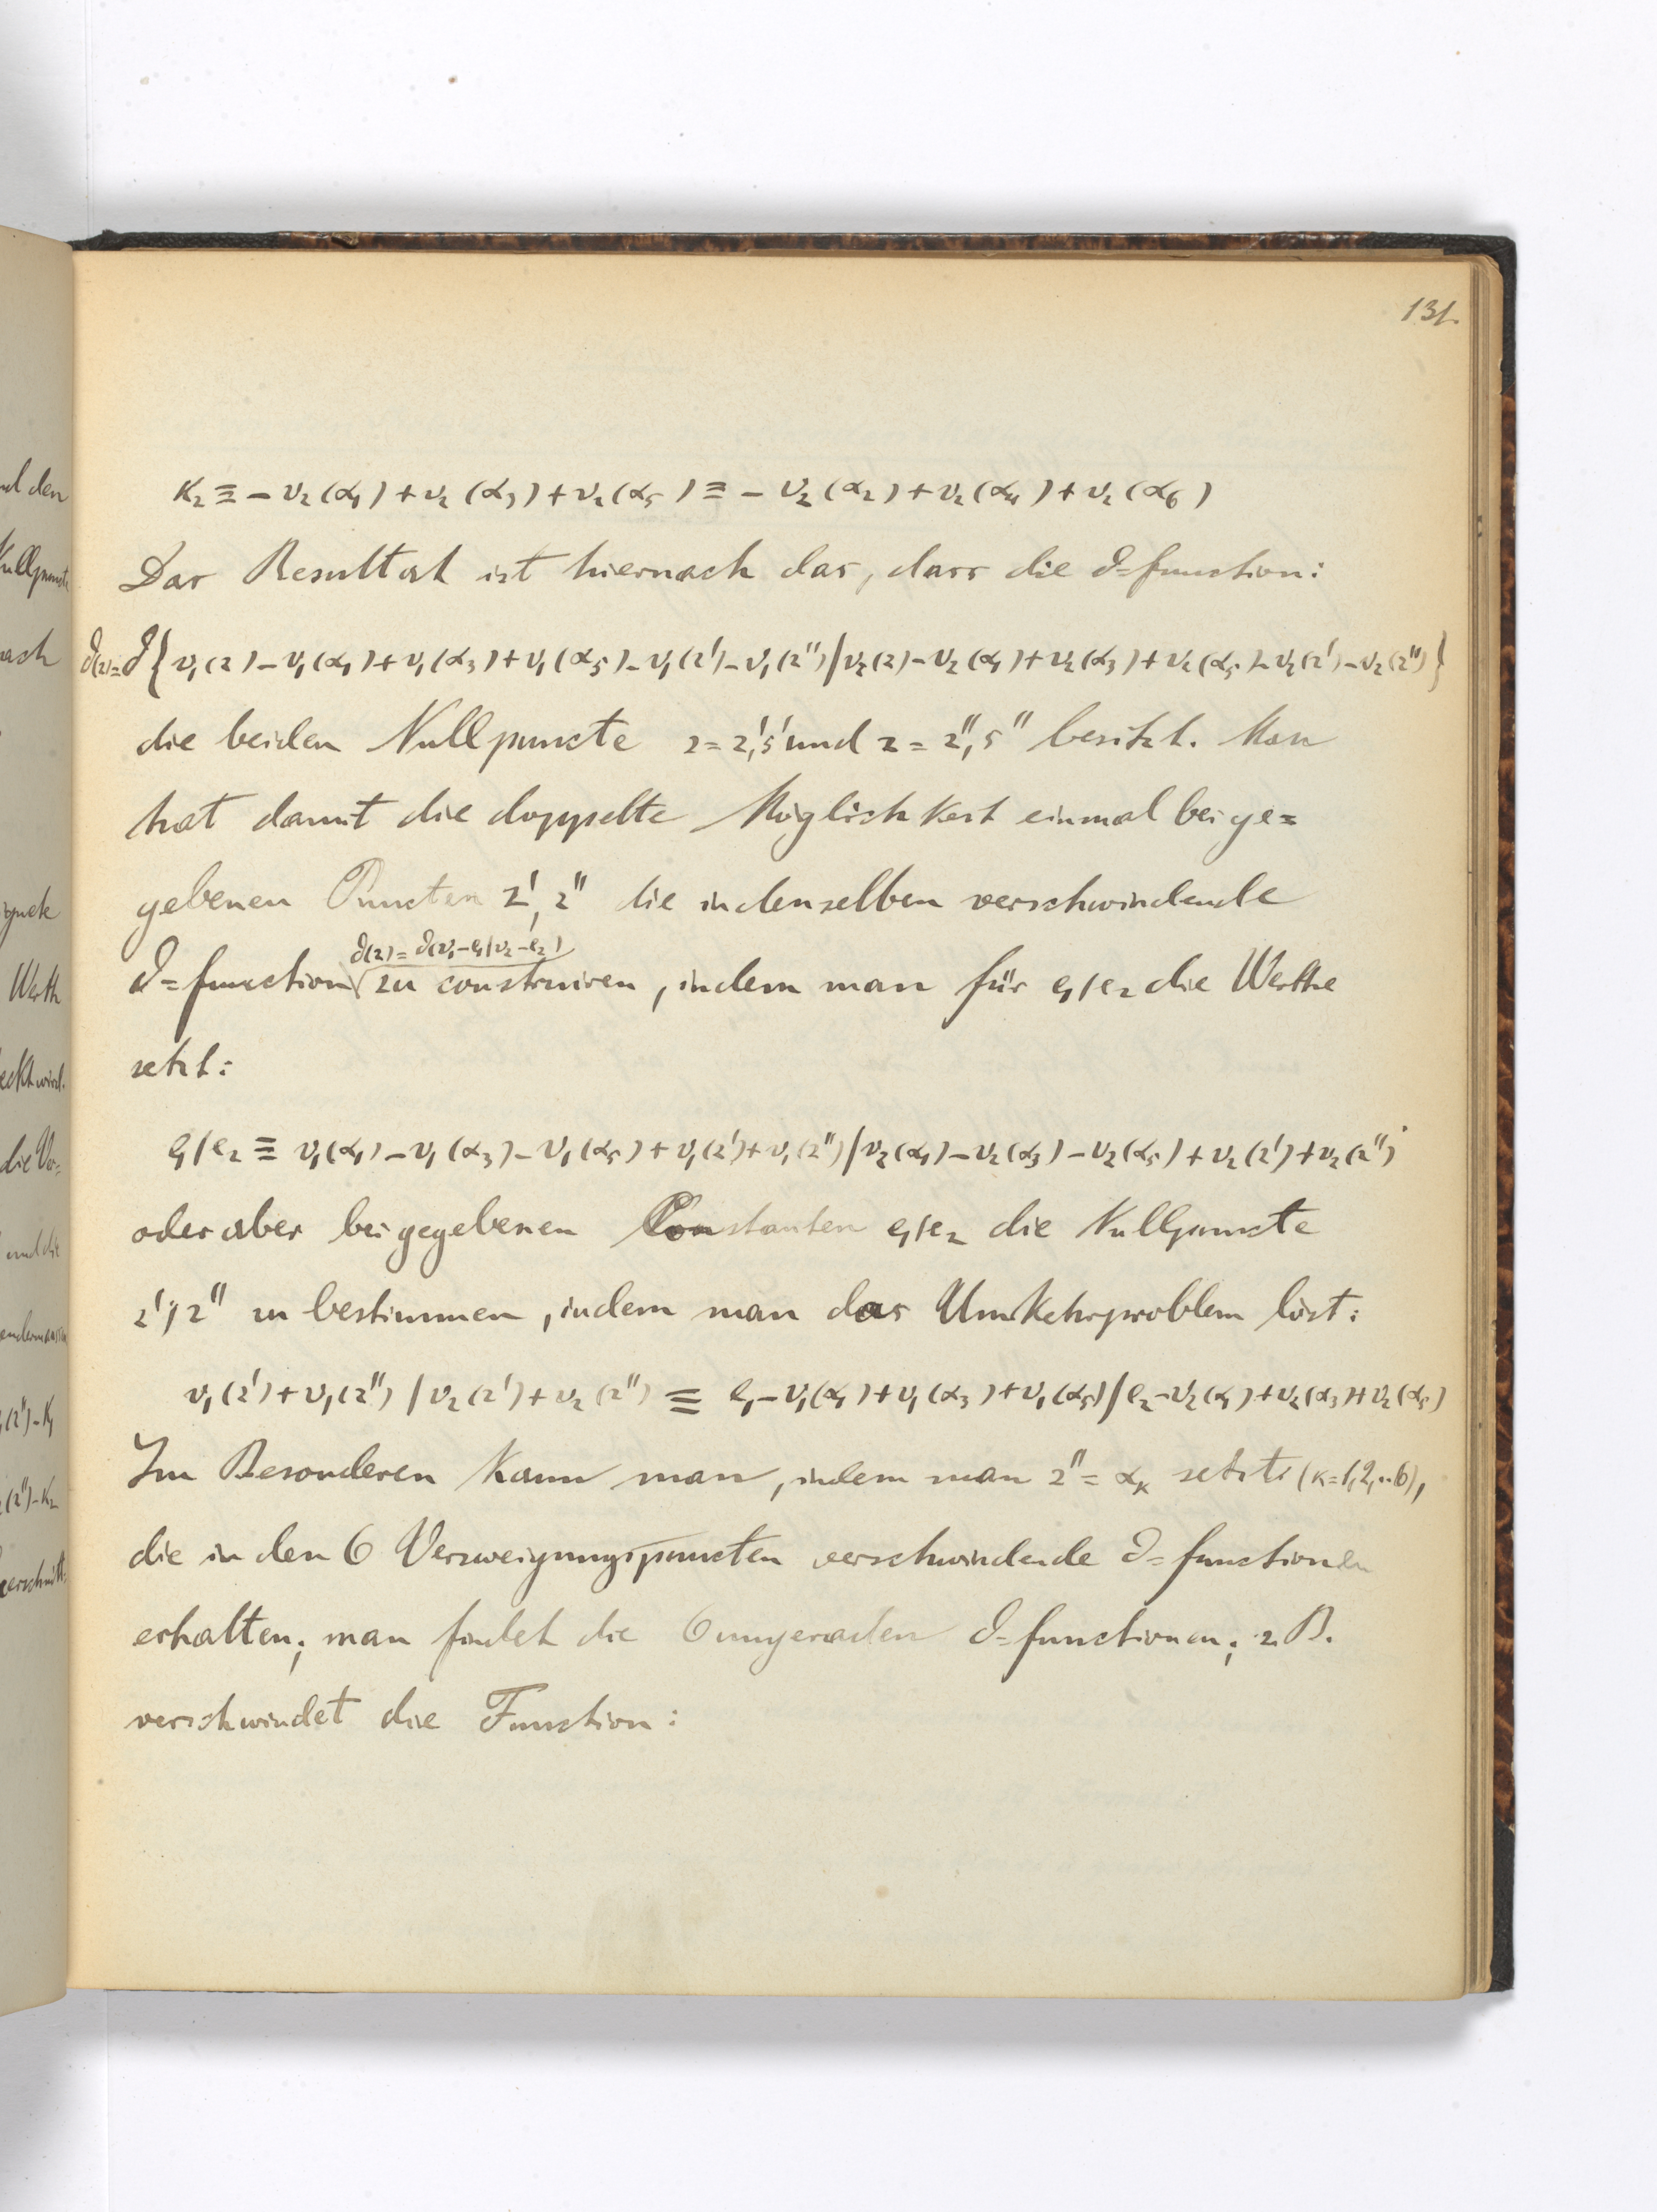 131.
K₂ ≡ – v₂(α₁) + v₂(α₃) + v₂(α₅) ≡ – v₂(α₂) + v₂(α₄) + v₂(α₆)
Das Resultat ist hiernach das, dass die ϑ=function:
ϑ(z)=ϑ{v₁(z) – v₁(α₁) + v₁(α₃) + v₁(α₅) – v₁(z') – v₁(z'') / v₂(z) – v₂(α₁) + v₂(α₃) + v₂(α₅) – v₂(z') – v₂(z'')}
die beiden Nullpuncte z = z',s' und z = z'',s'' besitzt. Man
hat damit die doppelte Möglichkeit einmal bei ge=
gebenen Puncten z', z'' die in denselben verschwindende
ϑ(z) = ϑ(v₁–e₁/v₂–e₂)
ϑ=function zu construiren, indem man für e₁/e₂ die Werthe
setzt:
e₁/e₂ ≡ v₁(α₁) – v₁(α₃) – v₁(α₅) + v₁(z') + v₁(z'') / v₂(α₁) – v₂(α₃) – v₂(α₅) + v₂(z') + v₂(z'')
oder aber bei gegebenen Constanten e₁/e₂ die Nullpuncte
z', z'' zu bestimmen, indem man das Umkehrproblem löst:
v₁(z') + v₁(z'') / v₂(z') + v₂(z'') ≡ e₁ – v₁(α₁) + v₁(α₃) + v₁(α₅) / e₂ – v₂(α₁) + v₂(α₃) + v₂(α₅)
Im Besonderen kann man, indem man z'' = αₖ setzt (κ=1,2,..6),
die in den 6 Verzweigungspuncten verschwindende ϑ=functionen
erhalten; man findet die 6 ungeraden ϑ=functionen; z.B.
verschwindet die Function: